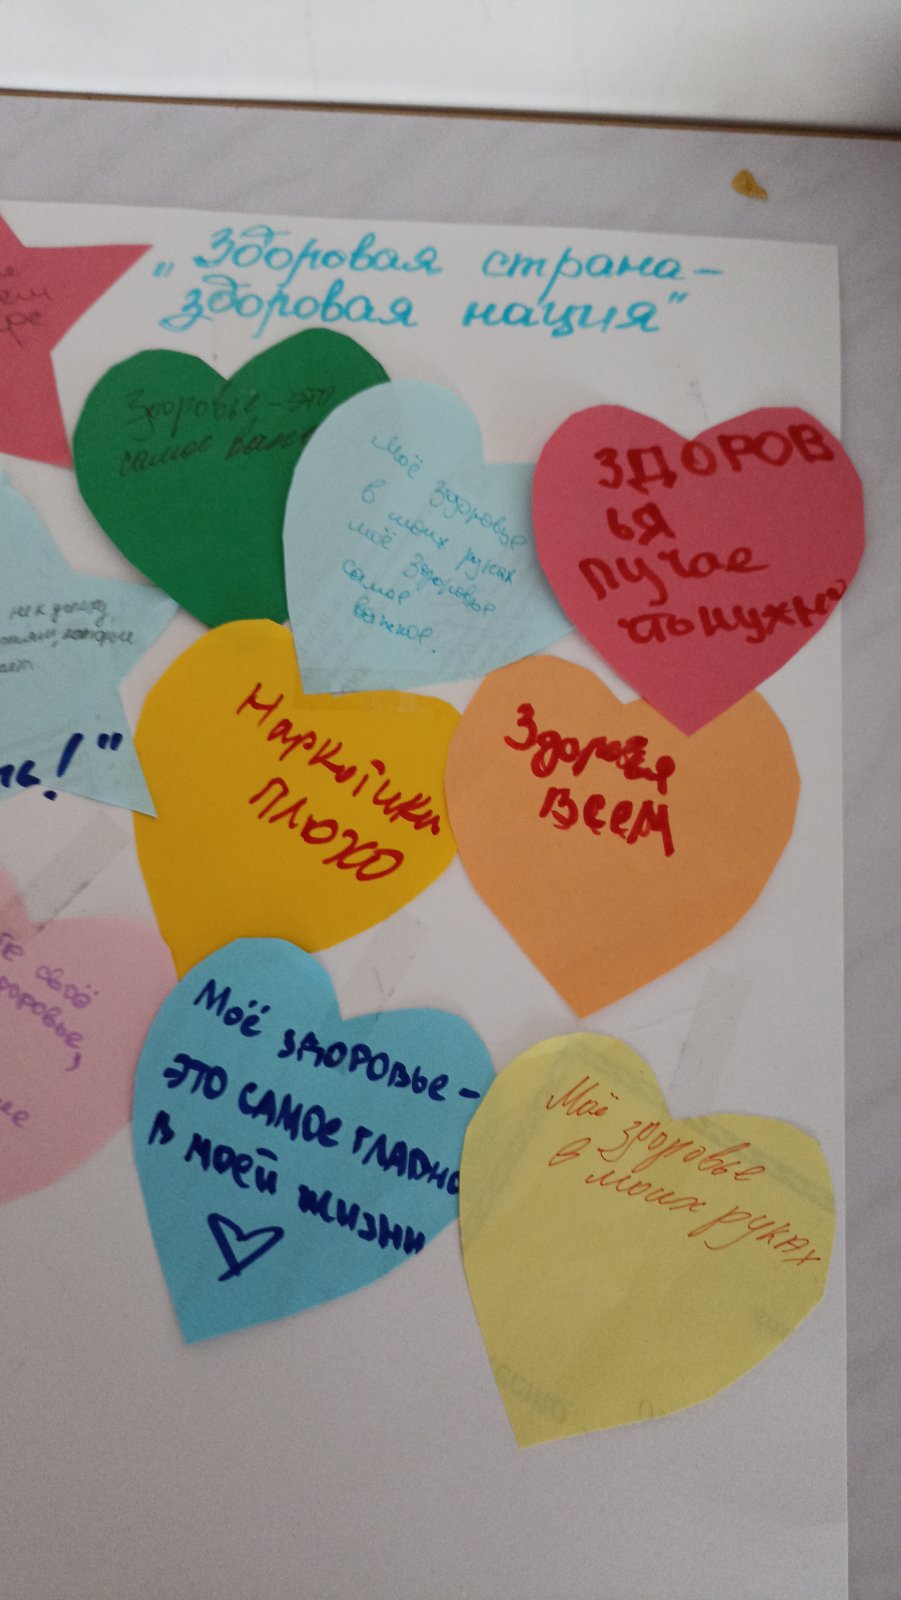 „Здоровая страна-
здоровая нация"
Здоровье - это
самое
Моё здоровье
в моих руках
моё здоровье
самое
важное.
ЗДОРОВ
ЬЯ
ЛУЧАЕ
чтонужно
Наркотики
ПЛОХО
Здоровья
всем
Моё здоровье -
ЭТО САМОЕ ГЛАВНО
в моей жизни
Моё здоровье
в моих руках
своё